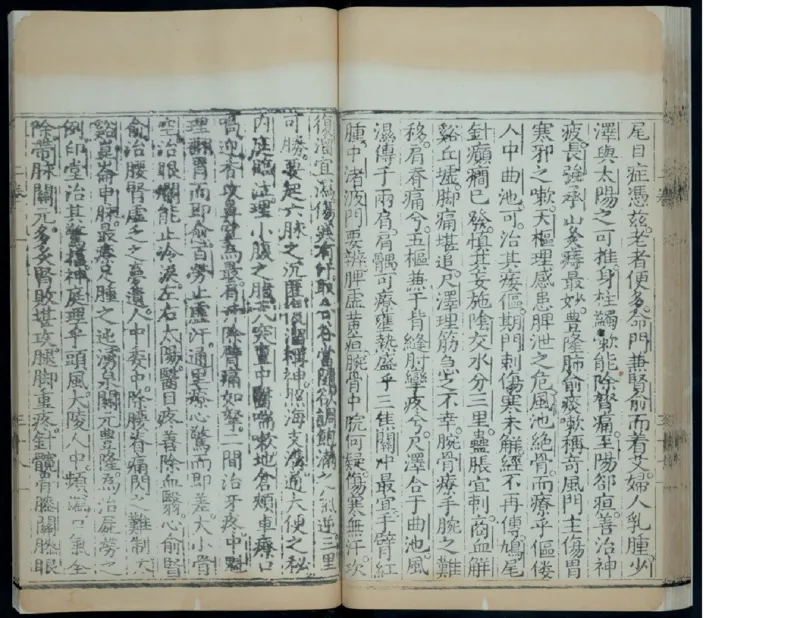 尾目症憑茲。老者便多。命門兼腎俞而着艾。婦人乳腫。少
澤與太陽之可推。身柱蠲嗽能除膂痛。至陽卻疸。善治神
疲。長強承山灸痔最妙。豊隆肺俞痰嗽稱奇。風門主傷冒
寒邪之嗽。天樞理感患脾泄之危。風池絶骨。而療乎傴僂
人中曲池。可治其痿傴。期門刺傷寒未解。經不再傳。鳩尾
針癲癎已發。慎其妄施。陰交水分三里。蠱脹宜刺。商血解
谿丘墟。脚痛堪追。尺澤理筋急之不幸。腕骨療手腕之難
移。肩脊痛兮。五樞兼于背縫。肘攣疼兮。尺澤合于曲池。風
濕傳于兩肩。肩髃可療。壅熱盛乎三焦。關冲最宜。手臂紅
腫。中渚波門要辨。脾虚黄疸。腕骨中院何疑。傷寒無汗。攻
復溜宜瀉。傷寒有汗取合谷當隨。欲調飽滿之氣逆。三里
可勝。要起六脉之沉匿。復溜稱神。照海支溝通大便之秘
内庭臨泣。理小腹之䐜。天突膻中醫喘嗽。地倉頰車療口
喎。迎香攻鼻窒為最。肩井除臂痛如拏。二間治牙疼。中魁
理翻胃而即愈。百勞止虚汗。通里療心驚而即差。大小骨
空。治眼爛能止冷淚。左右太陽。醫目疼善除血翳。心俞腎
俞。治腰腎虛乏之夢遺。人中委中。除腰脊痛閃之難制。太
谿崑崙申脉。最療足腫之迍。湧泉關元豊隆。為治屍勞之
例。印堂治其驚搐。神庭理乎頭風。大陵人中頻瀉。口氣全
除。帶脉關元多灸。腎敗堪攻。腿脚重疼。針髖骨膝關膝眼